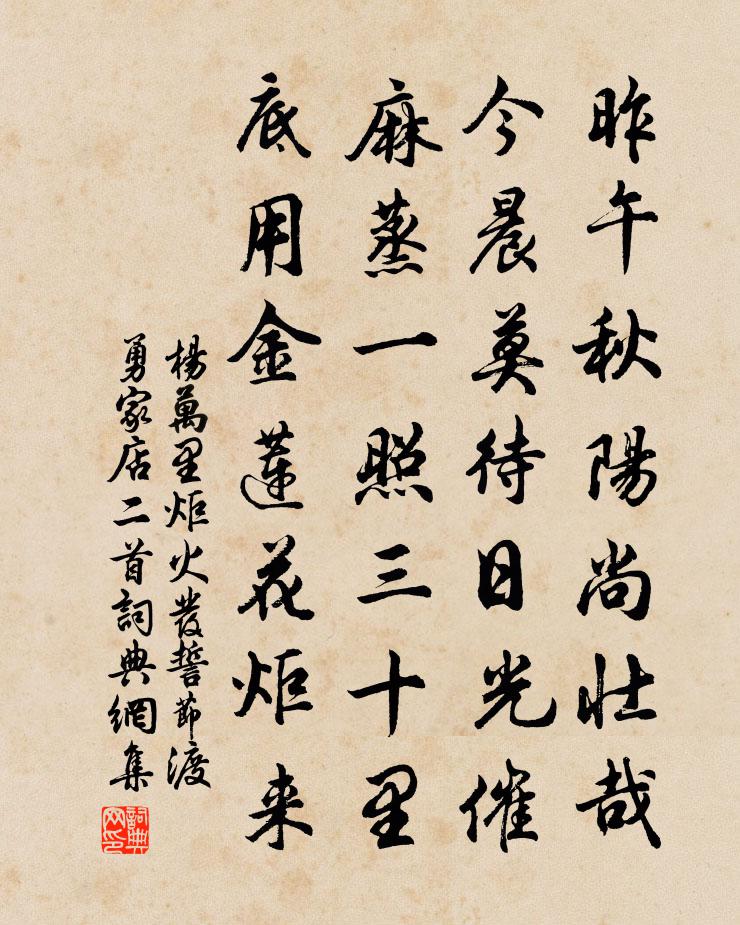 昨午秋陽尚壯哉
今晨莫待日光催
麻蒸一照三十里
底用金蓮花炬来
楊萬里炬火發誓節渡
勇家店二首詞典網集
詞典
网印